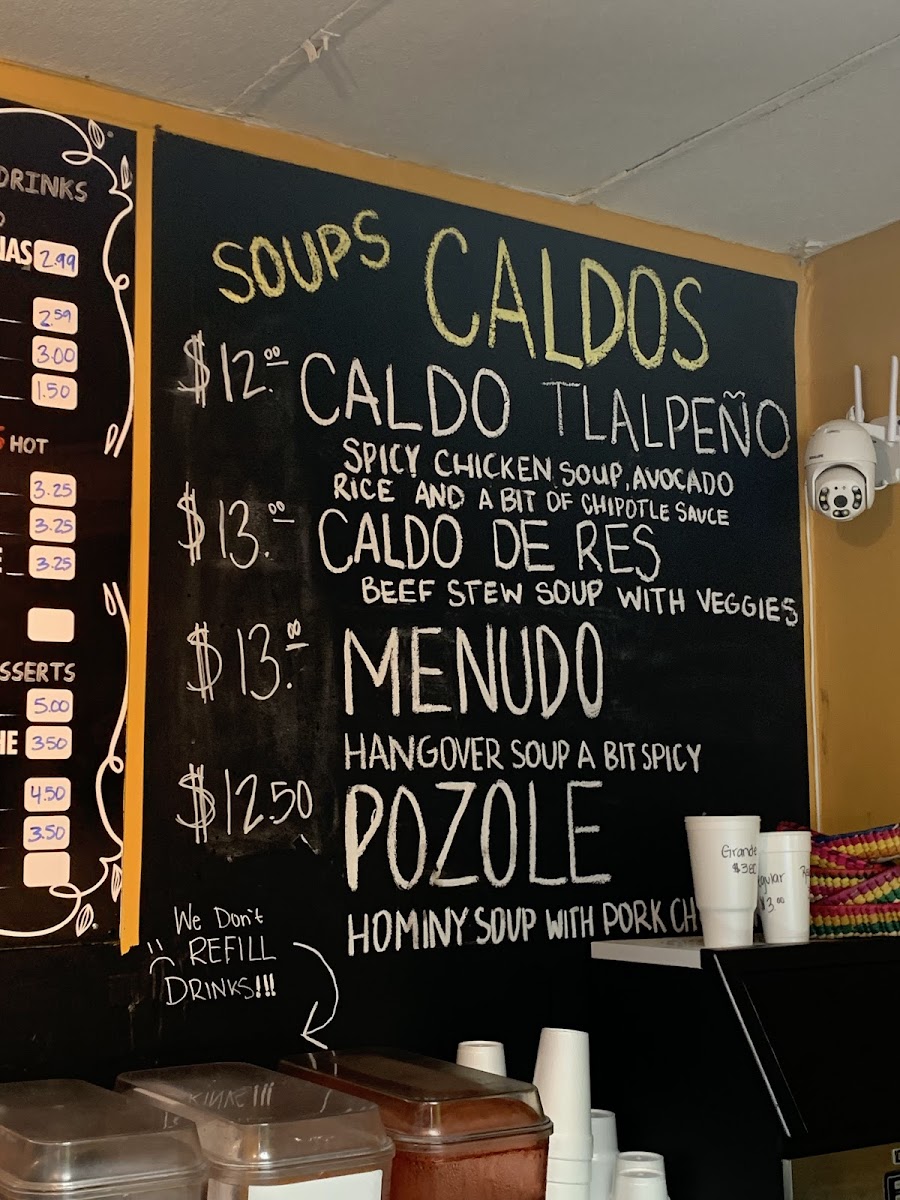 DRINKS
2.99
2.59
3.00
1.50
HOT
3.25
3.25
3.25
5.00
350
4.50
3.50
SOUPS CALDOS
$12.00 CALDO TLALPEÑO
SPICY CHICKEN SOUP, AVOCADO
RICE AND A BIT OF CHIPOTLE SAUCE
$13.00 CALDO DE RES
BEEF STEW SOUP WITH VEGGIES
$13.00 MENUDO
HANGOVER SOUP A BIT SPICY
$12.50 POZOLE
HOMINY SOUP WITH PORK CH
We Don't
REFILL
DRINKS!!!
Grande